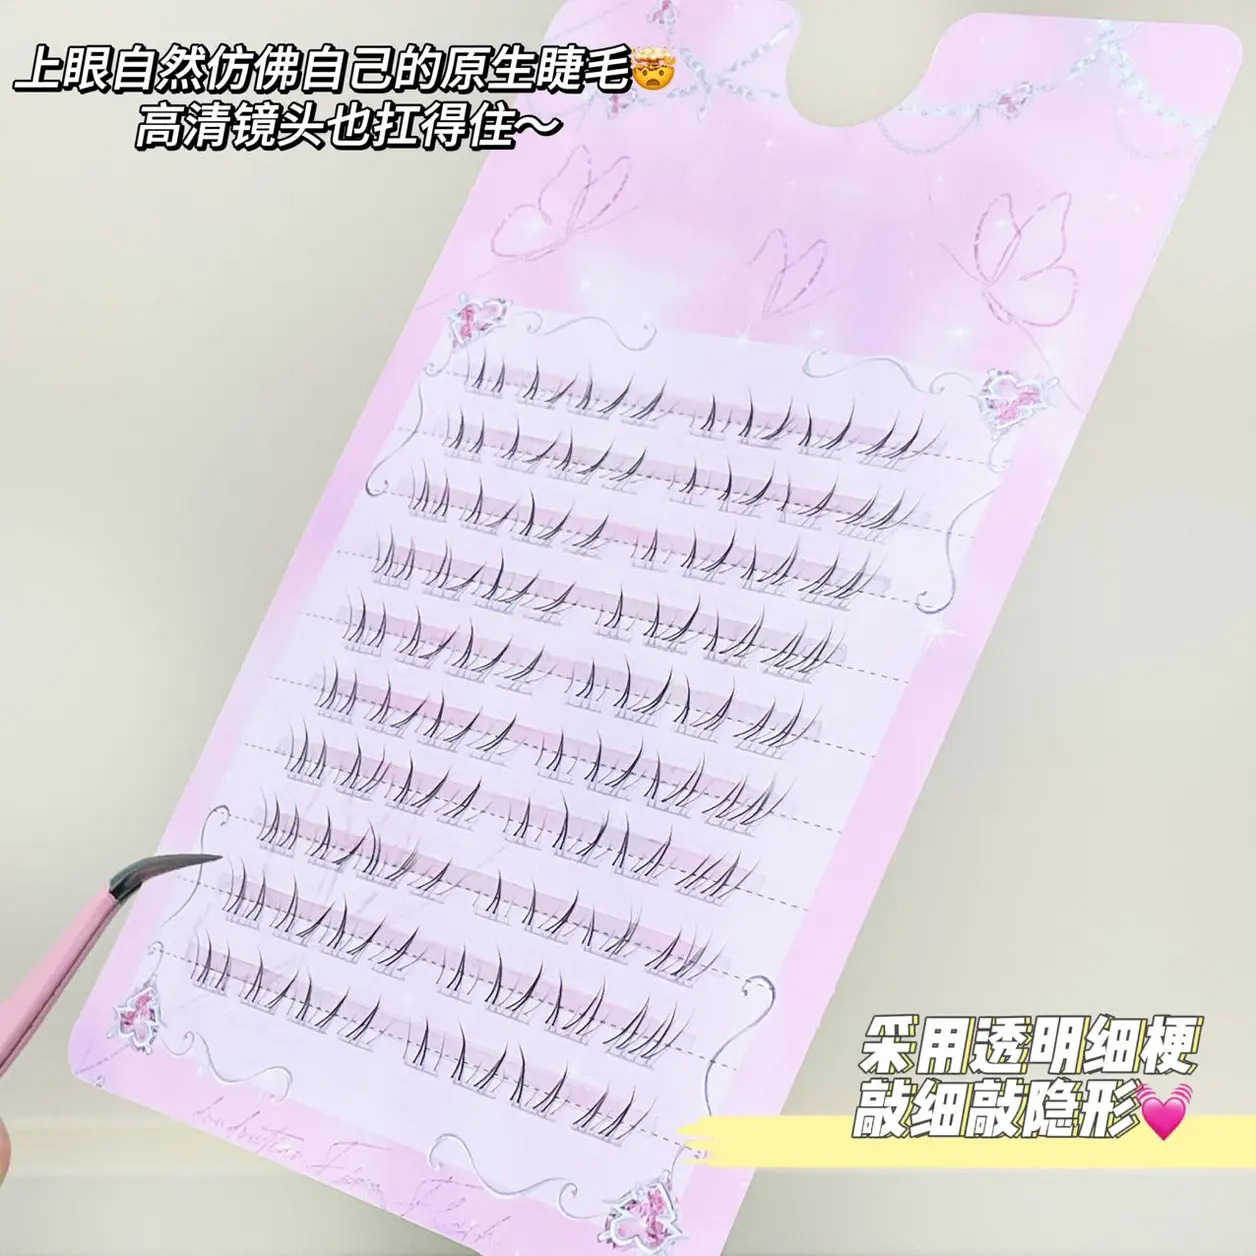 上眼自然仿佛自己的原生睫毛🤯
高清镜头也扛得住～
采用透明细梗
敲细敲隐形💓